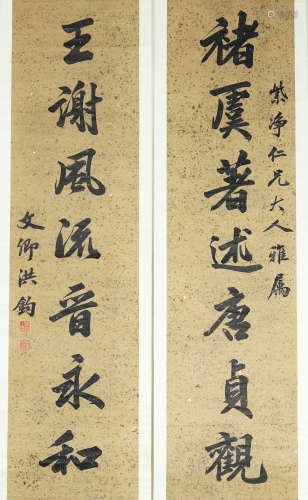 褚虞著述唐貞觀
紫淨仁兄大人雅属
王謝風流晉永和
文卿洪鈞